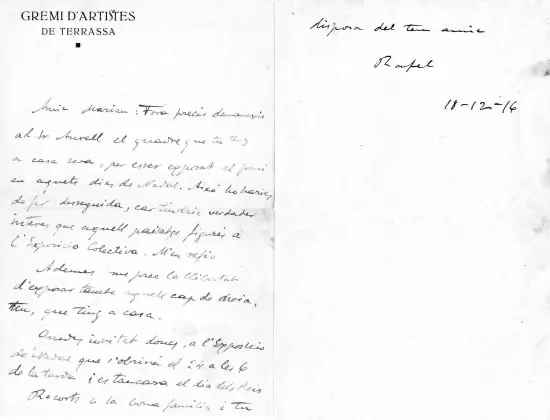 GREMI D'ARTISTES
DE TERRASSA
Amic Marian: Fora precís demanessis
al Sr Aurell el quadre que tu tens
a casa seva, per esser exposat al gremi
en aquets dies de Nadal. Això ho haries
de fer desseguida, car tindria verdader
interes que aquell paisatge figurés a
l'Exposicio Colectiva. M'en refio
Ademes me prec la llibertat
d'exposar també aquell cap de dona,
teu, que tinc a casa.
Quedes invitat dones, a l'Exposicio
de Nadal que s'obrirà el 24 a les 6
de la tarda i es tancara el dia dels Reis
Records a la bona familia i tu
disposa del teu amic
Rafel
18-12-16